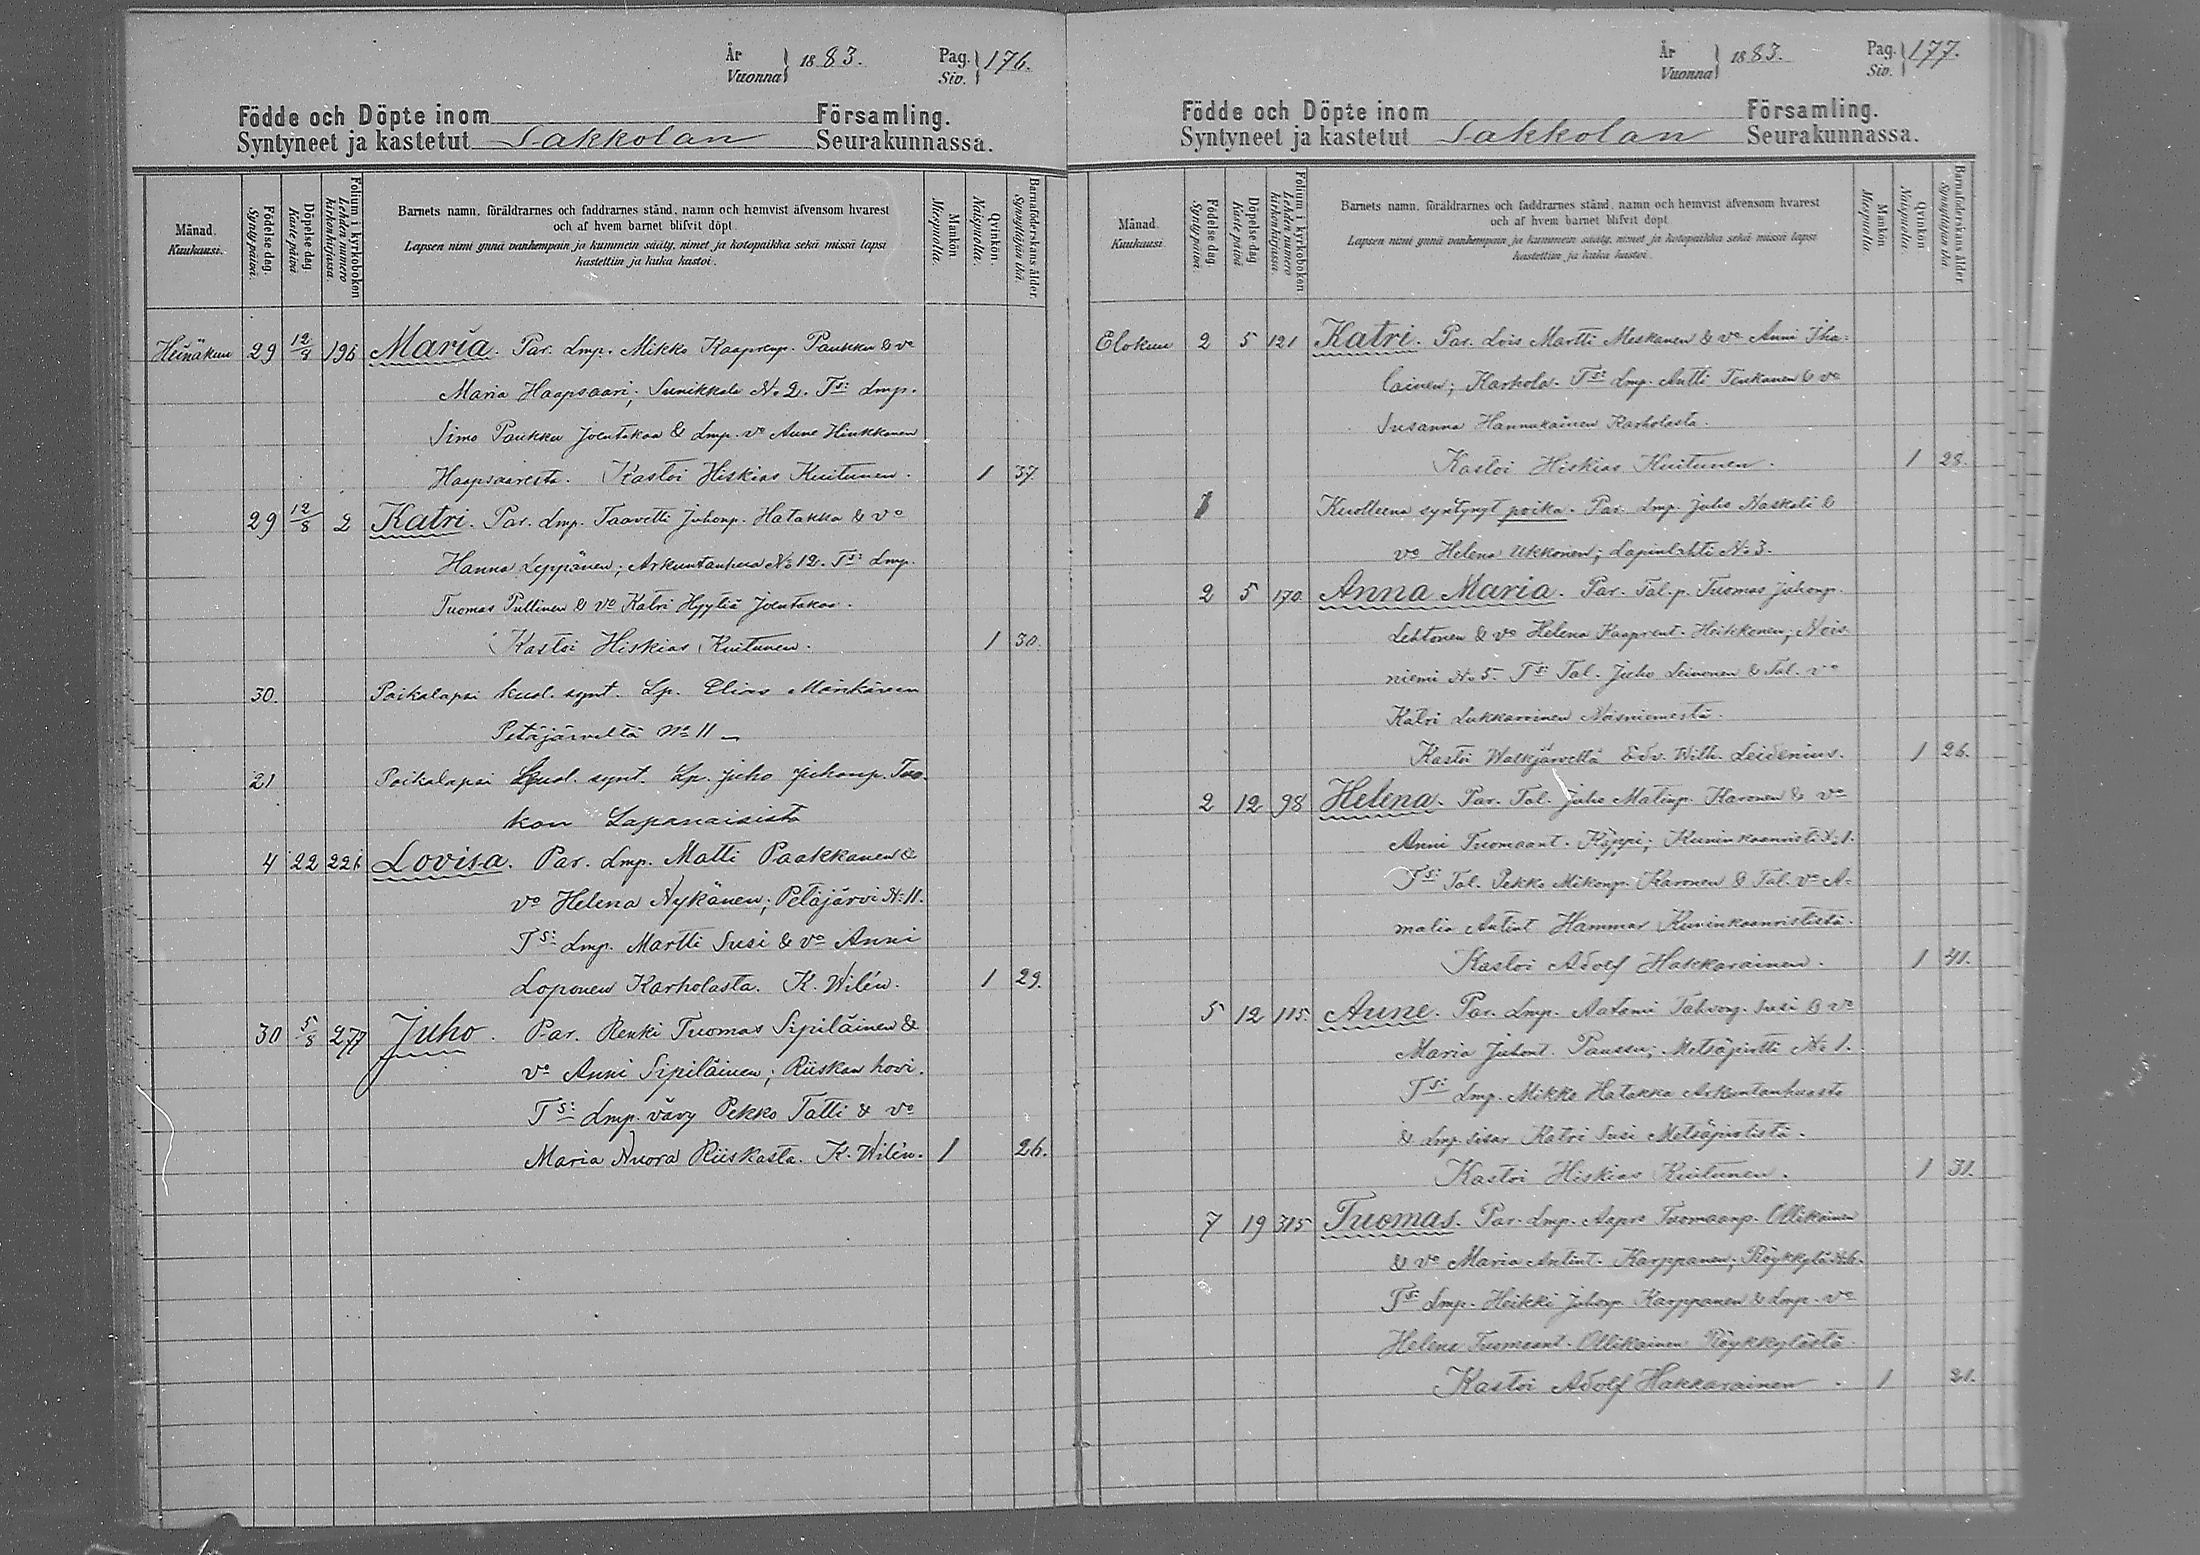 År
Vuonna 1883. Pag. Siv. 176.
Födde och Döpte inom Församling.
Syntyneet ja kastetut Sakkolan Seurakunnassa.
Månad. Kuukausi.
Födelsedag. Syntypäivä.
Döpelsedag. Kastepäivä
Folium i kyrkoboken Lehden numero kirkonkirjassa.
Barnets namn, föräldrarnes och faddrarnes stånd, namn och hemvist äfvensom hvarest
och af hvem barnet blifvit döpt.
Lapsen nimi ynnä vanhempain ja kummein sääty, nimet ja kotopaikka sekä missä lapsi
kastettiin ja kuka kastoi.
Mankön. Miespuolia.
Qvinkön. Naispuolia.
Barnaföderskans ålder. Synnyttäjän ikä.
Heinäkuu 29 12/8 196 Maria. Par. Lmp. Mikko Kaaprenp. Paukku & vo
Maria Haapsaari; Sunikkala No 2. Ts: Lmp.
Simo Paukku Joentakaa & Lmp. vo Anne Hinkkanen
Haapsaaresta. Kastoi Hiskias Kuitunen. 1 37.
29 12/8 2 Katri. Par. Lmp. Taavetti Juhonp. Hatakka & vo
Hanna Leppänen; Arkuntanhua No 12. Ts: Lmp.
Tuomas Pullinen & vo Katri Hyytiä Joentakaa.
Kastoi Hiskias Kuitunen. 1 30.
30. Poikalapsi kuol. synt. Lp. Elias Mänkäreen
Petäjärveltä No 11
21 Poikalapsi kuol. synt. Lp. Juho Juhonp. Tuo-
kon Lapanaisista
4 22 226 Lovisa. Par. Lmp. Matti Paakkanen &
vo Helena Nykänen; Petäjärvi N: 11.
Ts: Lmp. Martti Susi & vo Anni
Loponen Karholasta. K. Wilén. 1 29.
30 5/8 277 Juho. Par. Renki Tuomas Sipiläinen &
vo Anni Sipiläinen; Riiskan hovi.
Ts: Lmp. vävy Pekko Tatti & vo
Maria Nuora Riiskasta. K. Wilén. 1 26.
År
Vuonna 1883. Pag. Siv. 177.
Födde och Döpte inom Församling.
Syntyneet ja kastetut Sakkolan Seurakunnassa.
Månad. Kuukausi.
Födelsedag. Syntypäivä.
Döpelsedag. Kastepäivä
Folium i kyrkoboken. Lehden numero kirkonkirjassa.
Barnets namn, föräldrarnes och faddrarnes stånd, namn och hemvist äfvensom hvarest
och af hvem barnet blifvit döpt.
Lapsen nimi ynnä vanhempain ja kummein sääty, nimet ja kotopaikka sekä missä lapsi
kastettiin ja kuka kastoi.
Mankön. Miespuolia.
Qvinkön. Naispuolia.
Barnaföderskans ålder. Synnyttäjän ikä
Elokuu 2 5 121 Katri. Par. Lois Martti Meskanen & vo Anni Iha-
lainen; Karhola. Ts: Lmp. Antti Tenkanen & vo
Susanna Hannukainen Karholasta.
Kastoi Hiskias Kuitunen. 1 28.
Kuolleena syntynyt poika. Par. Lmp. Juho Naskali &
vo Helena Ukkonen; Lapinlahti No 3.
2 5 170 Anna Maria. Par. Tal.p. Tuomas Juhonp.
Lehtonen & vo Helena Kaaprent. Heikkonen; Nois-
niemi No 5. Ts: Tal. Juho Leinonen & Tal. vo
Katri Lukkarinen Noisniemestä.
Kastoi Walkjärvellä Edv. Wilh. Leidenius. 1 26.
2 12 98 Helena. Par. Tal. Juho Matinp. Karonen & vo
Anni Tuomaant. Käppi; Kuninkaanristi No 1.
Ts: Tal. Pekko Mikonp. Karonen & Tal. vo A-
malia Antint Hammar Kuninkaanrististä.
Kastoi Adolf Hakkarainen. 1 41.
5 12 115. Aune. Par. Lmp. Aatami Tahvonp. Susi & vo
Maria Juhont. Paussu; Metsäpirtti No 1.
Ts: Lmp. Mikko Hatakka Arkuntanhuasta
& Lmp. sisar Katri Susi Metsäpirtistä.
Kastoi Hiskias Kuitunen. 1 31.
7 19 315 Tuomas. Par. Lmp. Aapro Tuomaanp. Ollikainen
& vo Maria Antint. Karppanen; Röykkylä No 6.
Ts: Lmp. Heikki Juhonp Karppanen & Lmp. vo
Helena Tuomaant. Ollikainen Röykkylästä.
Kastoi Adolf Hakkarainen. 1 21.